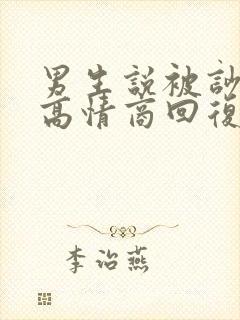 男生說被訓
高情商回復
李治燕